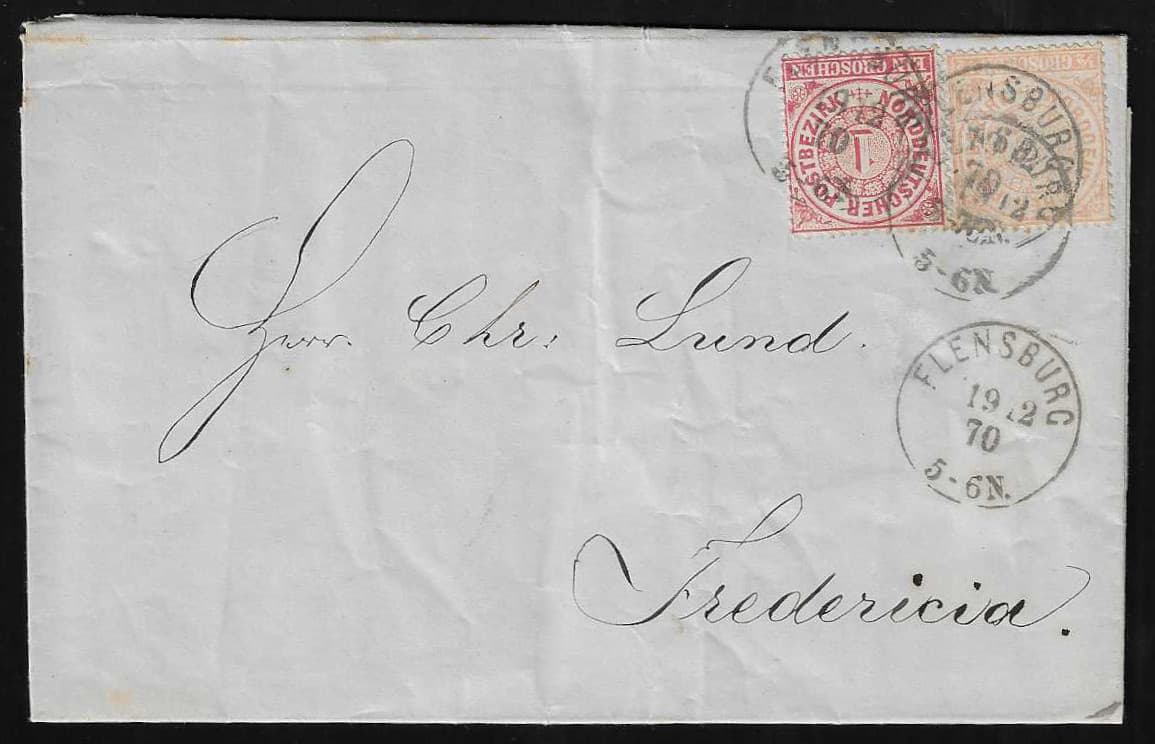 EIN GROSCHEN
NORDDEUTSCHER POSTBEZIRK
1
½ GROSCHEN
FLENSBURG
5-6N.
Herr. Chr: Lund.
FLENSBURG
19 12
70
5-6N.
Fredericia.